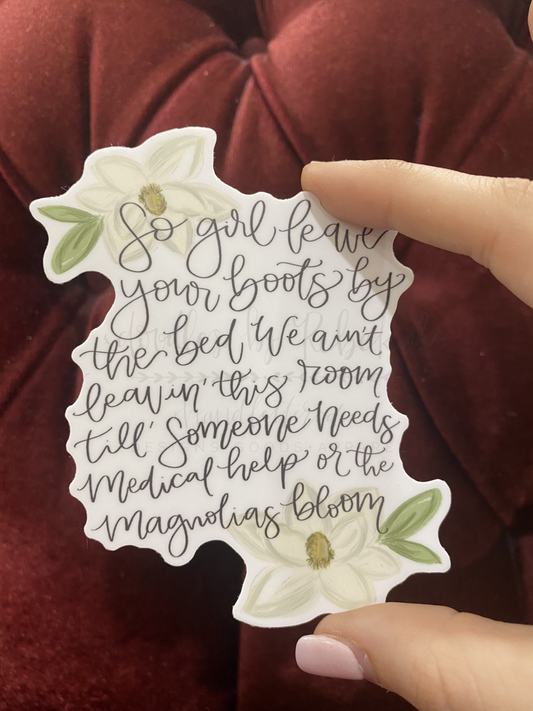 So girl leave
your boots by
the bed We ain't
leavin' this room
till' Someone Needs
Medical help or the
Magnolias bloom